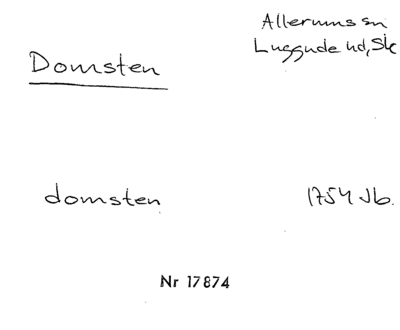 Allerums sn
Luggude hd, Sk
Domsten
domsten 1754 Jb.
Nr 17874